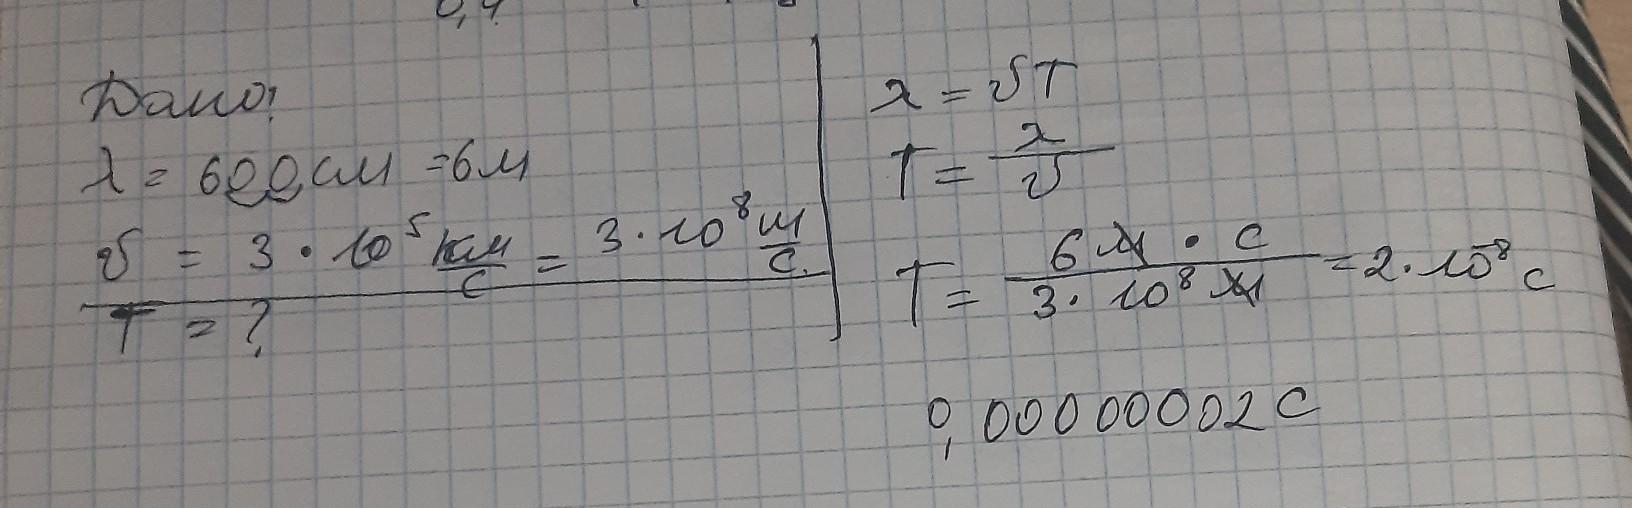 0,4
Дано:
λ = 600см = 6м
υ = 3 · 10⁵ км/с = 3 · 10⁸ м/с
T = ?
λ = υT
T = λ/υ
T = 6 м · с / 3 · 10⁸ м = 2 · 10⁻⁸ с
0,00000002 с